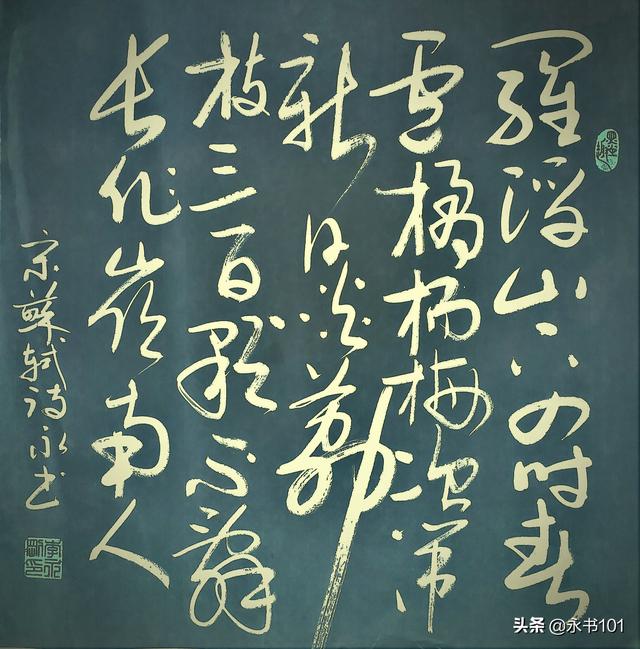 羅浮山下四时春
盧橘杨梅次第
新日啖荔
枝三百颗不辞
长作岭南人
宋蘇轼诗永书
头条 @永书101